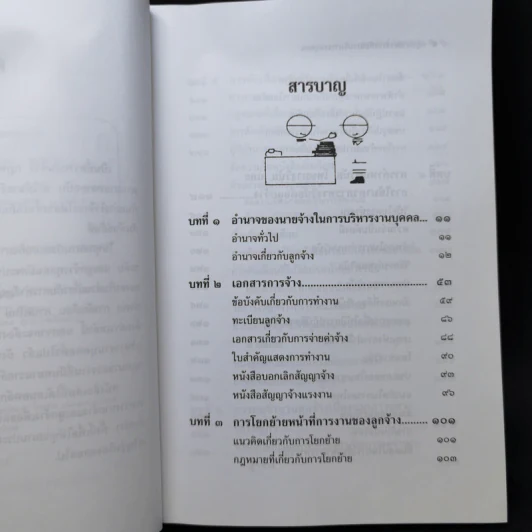 สารบาญ
บทที่ ๑ อำนาจของนายจ้างในการบริหารงานบุคคล... ๑๑
อำนาจทั่วไป ๑๑
อำนาจเกี่ยวกับลูกจ้าง ๑๒
บทที่ ๒ เอกสารการจ้าง.......................................... ๕๓
ข้อบังคับเกี่ยวกับการทำงาน ๕๙
ทะเบียนลูกจ้าง ๘๖
เอกสารเกี่ยวกับการจ่ายค่าจ้าง ๘๘
ใบสำคัญแสดงการทำงาน ๙๐
หนังสือบอกเลิกสัญญาจ้าง ๙๓
หนังสือสัญญาจ้างแรงงาน ๙๖
บทที่ ๓ การโยกย้ายหน้าที่การงานของลูกจ้าง......... ๑๐๑
แนวคิดเกี่ยวกับการโยกย้าย ๑๐๑
กฎหมายที่เกี่ยวกับการโยกย้าย ๑๐๓